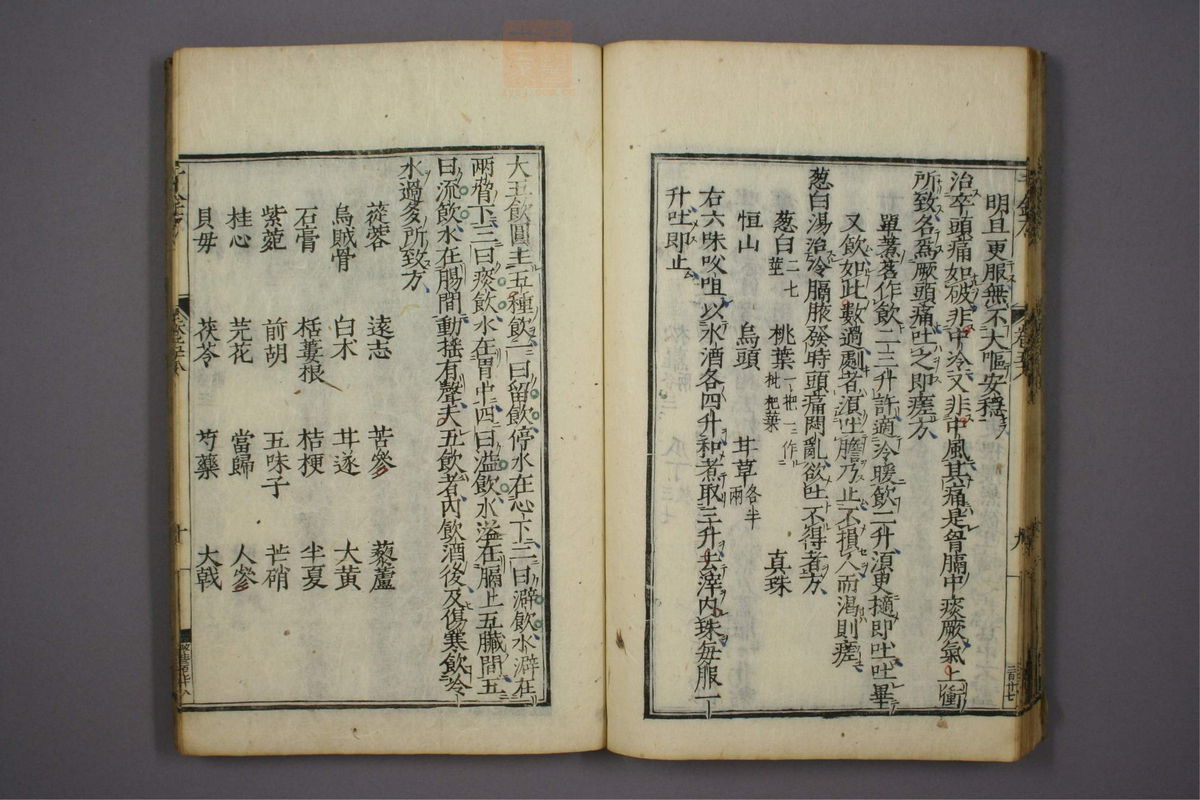 明旦更服無不大嘔安穩
治卒頭痛如破非中冷又非中風其痛是胷膈中痰厥氣上衝
所致名爲厥頭痛吐之即瘥方
單煮茗作飲二三升許適冷暖飲二升湏更擿即吐吐畢
又飲如此數過劇者湏吐膽乃止不損人而渴則瘥
葱白湯治冷膈腋發時頭痛悶亂欲吐不得者方
葱白二七莖 桃葉一把一作枇杷葉 真珠
恒山 烏頭 甘草各半兩
右六味㕮咀以水酒各四升和煮取三升去滓内珠每服一
升吐即止
大五飲圓主五種飲一曰留飲停水在心下二曰澼飲水澼在
兩脅下三曰痰飲水在胃中四曰溢飲水溢在膈上五臟間五
曰流飲水在腸間動摇有聲夫五飲者内飲酒後及傷寒飲冷
水過多所致方
蓯蓉 遠志 苦參 藜蘆
烏賊骨 白朮 甘遂 大黃
石膏 栝蔞根 桔梗 半夏
紫菀 前胡 五味子 芒硝
桂心 芫花 當歸 人參
貝母 茯苓 芍藥 大戟